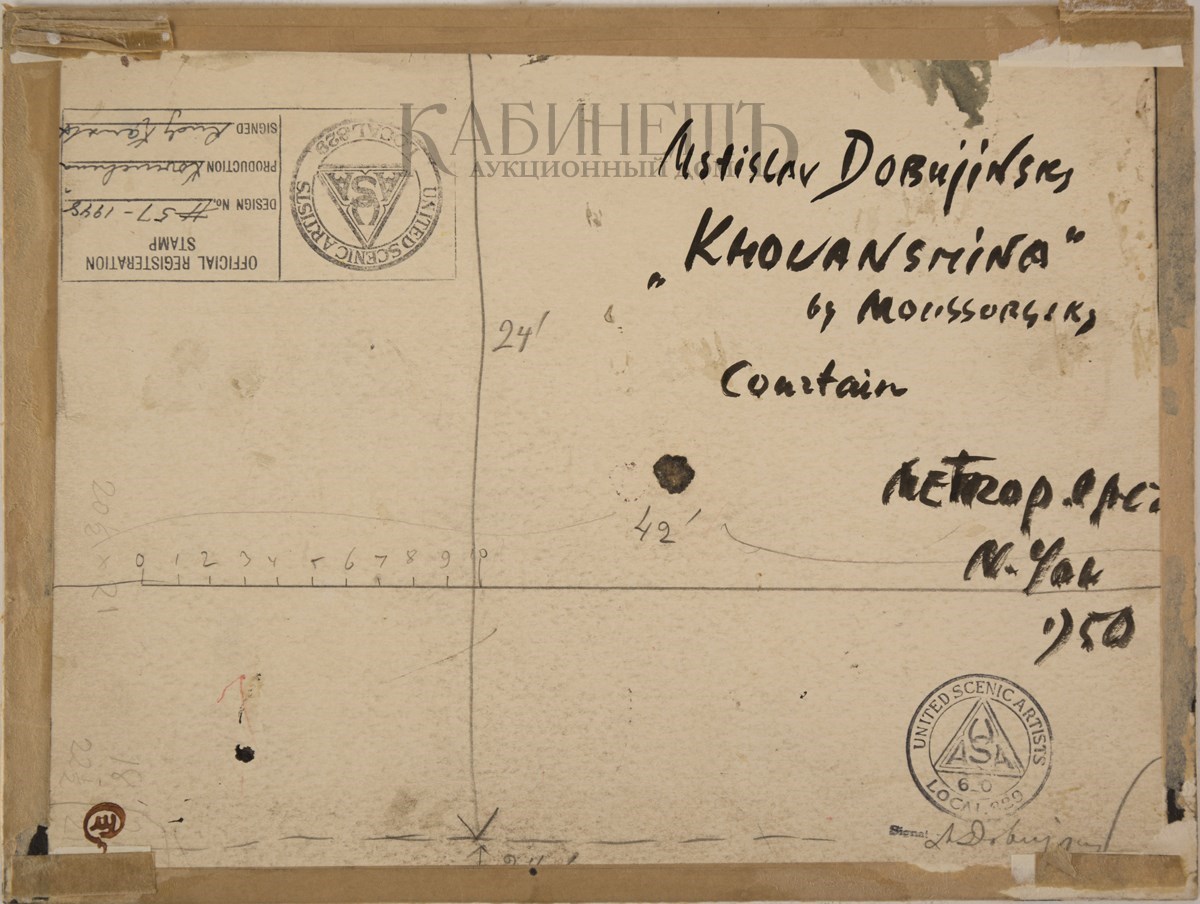 КАБИНЕТЪ
АУКЦИОННЫЙ ДОМ
Mstislav Dobujinsky
„KHOVANSHINA"
by Moussorgsky
Courtain
METROP.
N. York
1950
24'
42'
0 1 2 3 4 5 6 7 8 9 10
OFFICIAL REGISTERATION
STAMP
DESIGN No. #57-1948
PRODUCTION
SIGNED
UNITED SCENIC ARTISTS
LOCAL 829
USA
20½ × 21
18
22½
UNITED SCENIC ARTISTS
USA
LOCAL 829
Signa